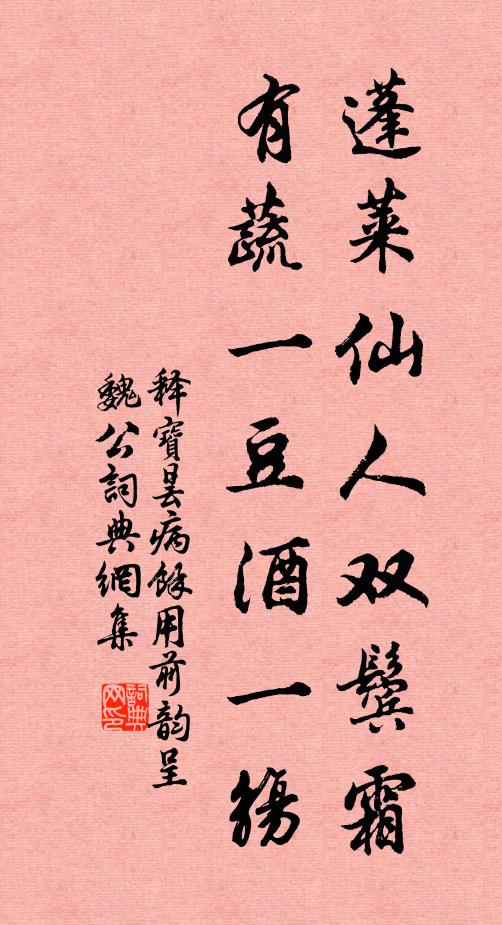 蓬莱仙人双鬓霜
有蔬一豆酒一觞
释寶昙病餘用前韵呈
魏公詞典網集
詞典网印